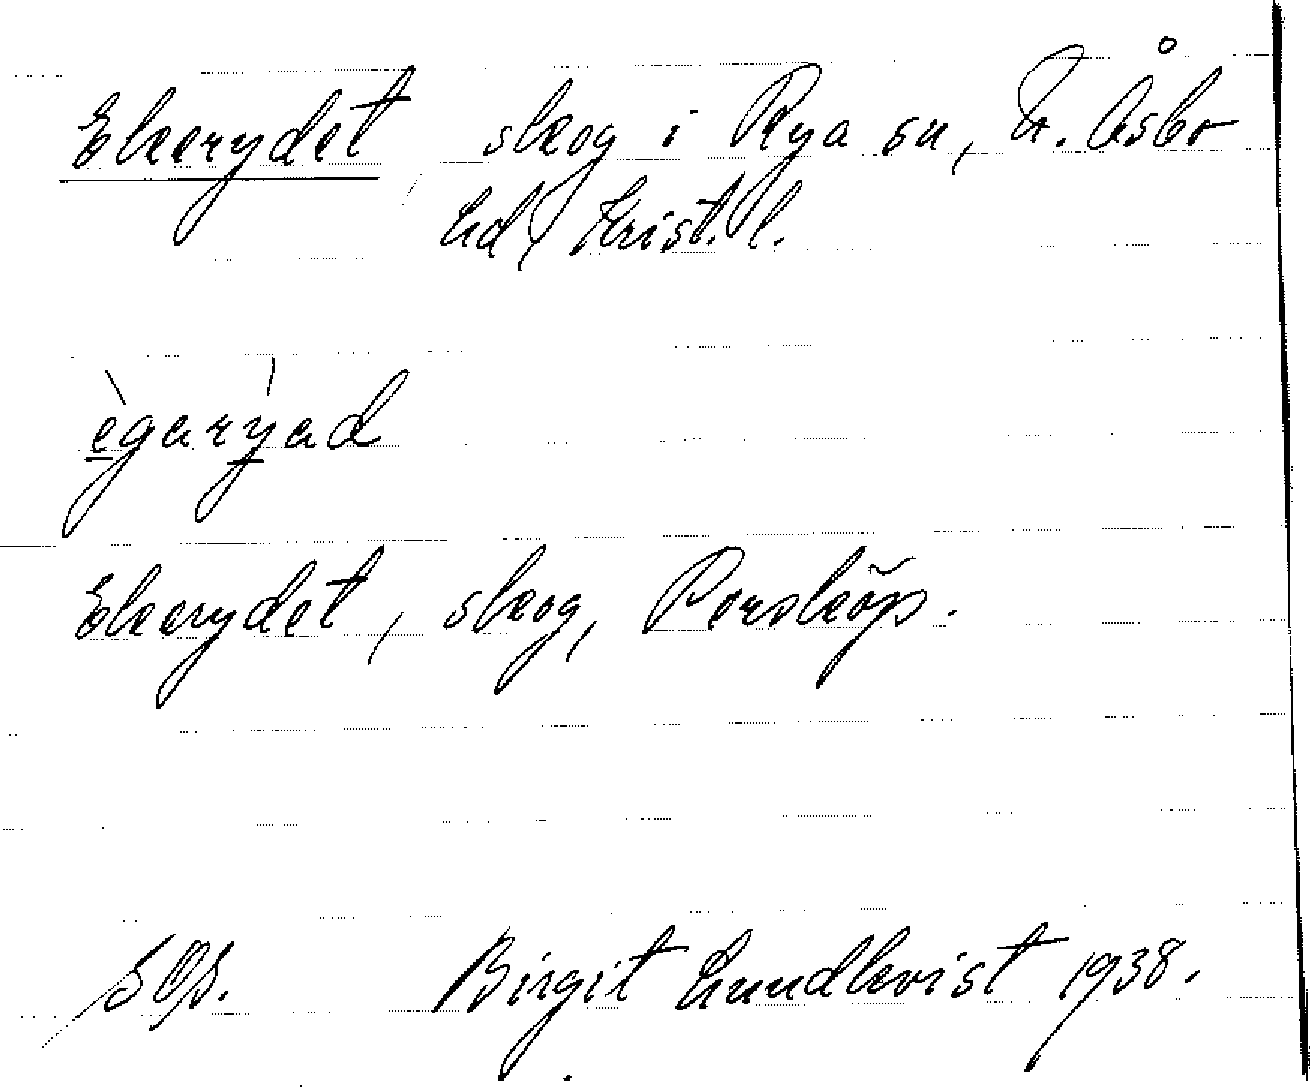 Ekerydet skog i Rya sn, N. Åsbo
hd, Krist. l.
ègarýad
Ekerydet, skog, Porsköp.
Birgit Lundkvist 1938.